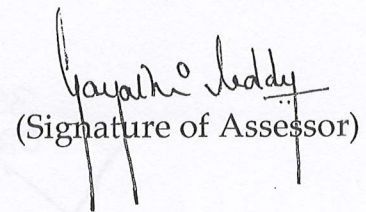 Gayathri Reddy
(Signature of Assessor)